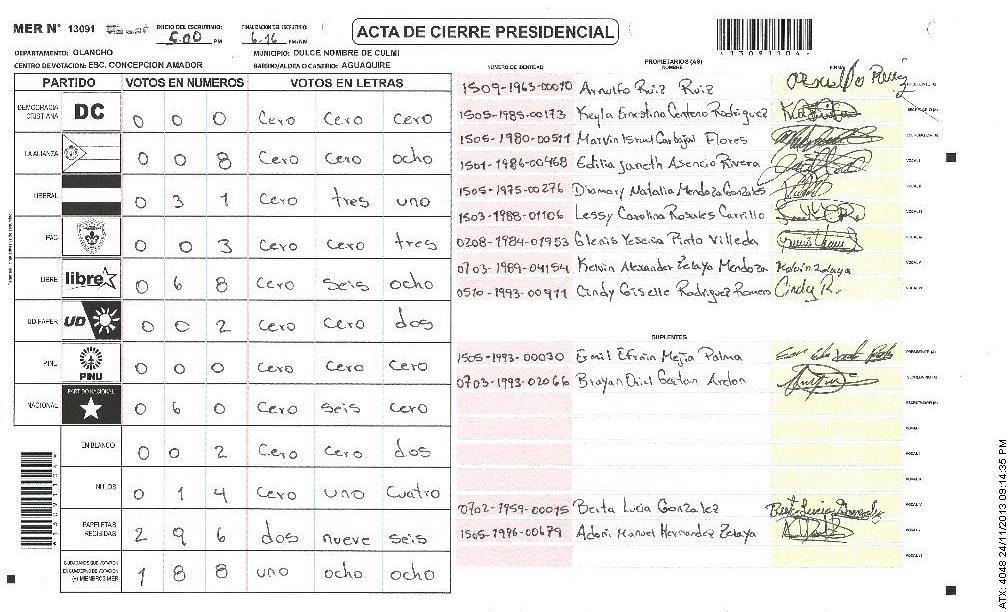 MER N° 13091 INICIO DEL ESCRUTINIO: 5:00 PM FINALIZACION DEL ESCRUTINIO: 6:16 PM/AM ACTA DE CIERRE PRESIDENCIAL
DEPARTAMENTO: OLANCHO MUNICIPIO: DULCE NOMBRE DE CULMI
CENTRO DE VOTACION: ESC. CONCEPCION AMADOR BARRIO/ALDEA O CASERIO: AGUAQUIRE
PARTIDO VOTOS EN NUMEROS VOTOS EN LETRAS
DEMOCRACIA CRISTIANA DC 0 0 0 Cero Cero Cero
LA ALIANZA 0 0 8 Cero Cero ocho
LIBERAL 0 3 1 Cero tres uno
PAC 0 0 3 Cero Cero tres
LIBRE libre 0 6 8 Cero Seis ocho
UD/FAPER UD 0 0 2 Cero Cero dos
PINU PINU 0 0 0 Cero Cero Cero
NACIONAL PARTIDO NACIONAL 0 6 0 Cero seis Cero
EN BLANCO 0 0 2 Cero Cero dos
NULOS 0 1 4 Cero uno Cuatro
PAPELETAS RECIBIDAS 2 9 6 dos nueve seis
CIUDADANOS QUE VOTARON EN CUADERNO DE VOTACION (+) MIEMBROS MER 1 8 8 uno ocho ocho
*13091104*
NUMERO DE IDENTIDAD PROPIETARIOS (AS) NOMBRE FIRMA
1509-1963-00070 Arnulfo Ruiz Ruiz PRESIDENTE (A)
1505-1985-00173 Keyla Ernestina Centeno Rodriguez SECRETARIO (A)
1505-1980-00511 Marvin Isrrael Carbajal Flores ESCRUTADOR (A)
1501-1986-00468 Edilia Janeth Asencio Rivera VOCAL I
1505-1975-00276 Diomary Natalia Mendoza Gonzales VOCAL II
1503-1988-01106 Lessy Carolina Rosales Carrillo VOCAL III
0208-1984-01953 Glenis Yesenia Pinto Villeda VOCAL IV
0703-1989-04154 Kelvin Alexander Zelaya Mendoza Kelvin Zelaya VOCAL V
0510-1993-00911 Cindy Giselle Rodriguez Romero Cindy R. VOCAL VI
SUPLENTES
1505-1993-00030 Ermil Efrain Mejia Palma PRESIDENTE (A)
0703-1993-02066 SECRETARIO (A)
ESCRUTADOR (A)
VOCAL I
VOCAL II
VOCAL III
0702-1959-00075 Berta Lucia Gonzalez VOCAL IV
1505-1976-00679 Manuel Hernandez Zelaya VOCAL V
VOCAL VI
ATX: 4048 24/11/2013 09:14:35 PM